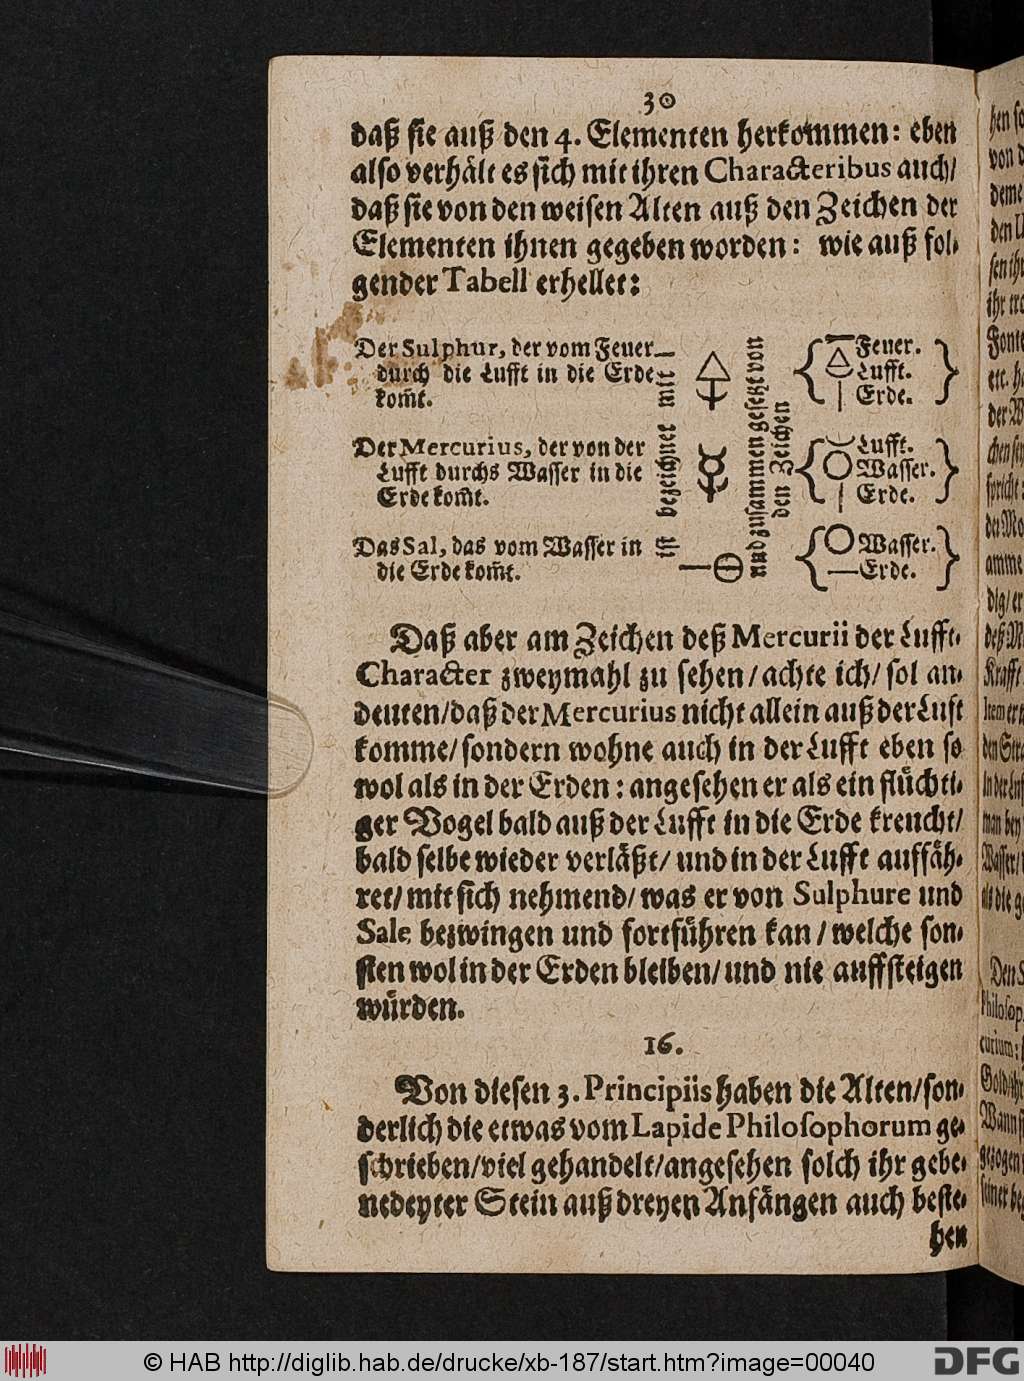 30
daß sie auß den 4. Elementen herkommen: eben
also verhält es sich mit ihren Characteribus auch/
daß sie von den weisen Alten auß den Zeichen der
Elementen ihnen gegeben worden: wie auß fol-
gender Tabell erhellet:
Der Sulphur, der vom Feuer
durch die Lufft in die Erde
kom̃t.
Der Mercurius, der von der
Lufft durchs Wasser in die
Erde kom̃t.
Das Sal, das vom Wasser in
die Erde kom̃t.
ist bezeichnet mit
und zusammen gesetzt von
den Zeichen
Feuer.
Lufft.
Erde.
Lufft.
Wasser.
Erde.
Wasser.
Erde.
Daß aber am Zeichen deß Mercurii der Lufft-
Character zweymahl zu sehen/achte ich/ sol an-
deuten/daß der Mercurius nicht allein auß der Luft
komme/sondern wohne auch in der Lufft eben so
wol als in der Erden: angesehen er als ein flüchti-
ger Vogel bald auß der Lufft in die Erde kreucht/
bald selbe wieder verläßt/ und in der Lufft auffäh-
ret/ mit sich nehmend/ was er von Sulphure und
Sale bezwingen und fortführen kan/welche son-
sten wol in der Erden bleiben/und nie auffsteigen
würden.
16.
Von diesen 3. Principiis haben die Alten/son-
derlich die etwas vom Lapide Philosophorum ge-
schrieben/viel gehandelt/angesehen solch ihr gebe-
nedeyter Stein auß dreyen Anfängen auch beste-
hen
© HAB http://diglib.hab.de/drucke/xb-187/start.htm?image=00040
DFG